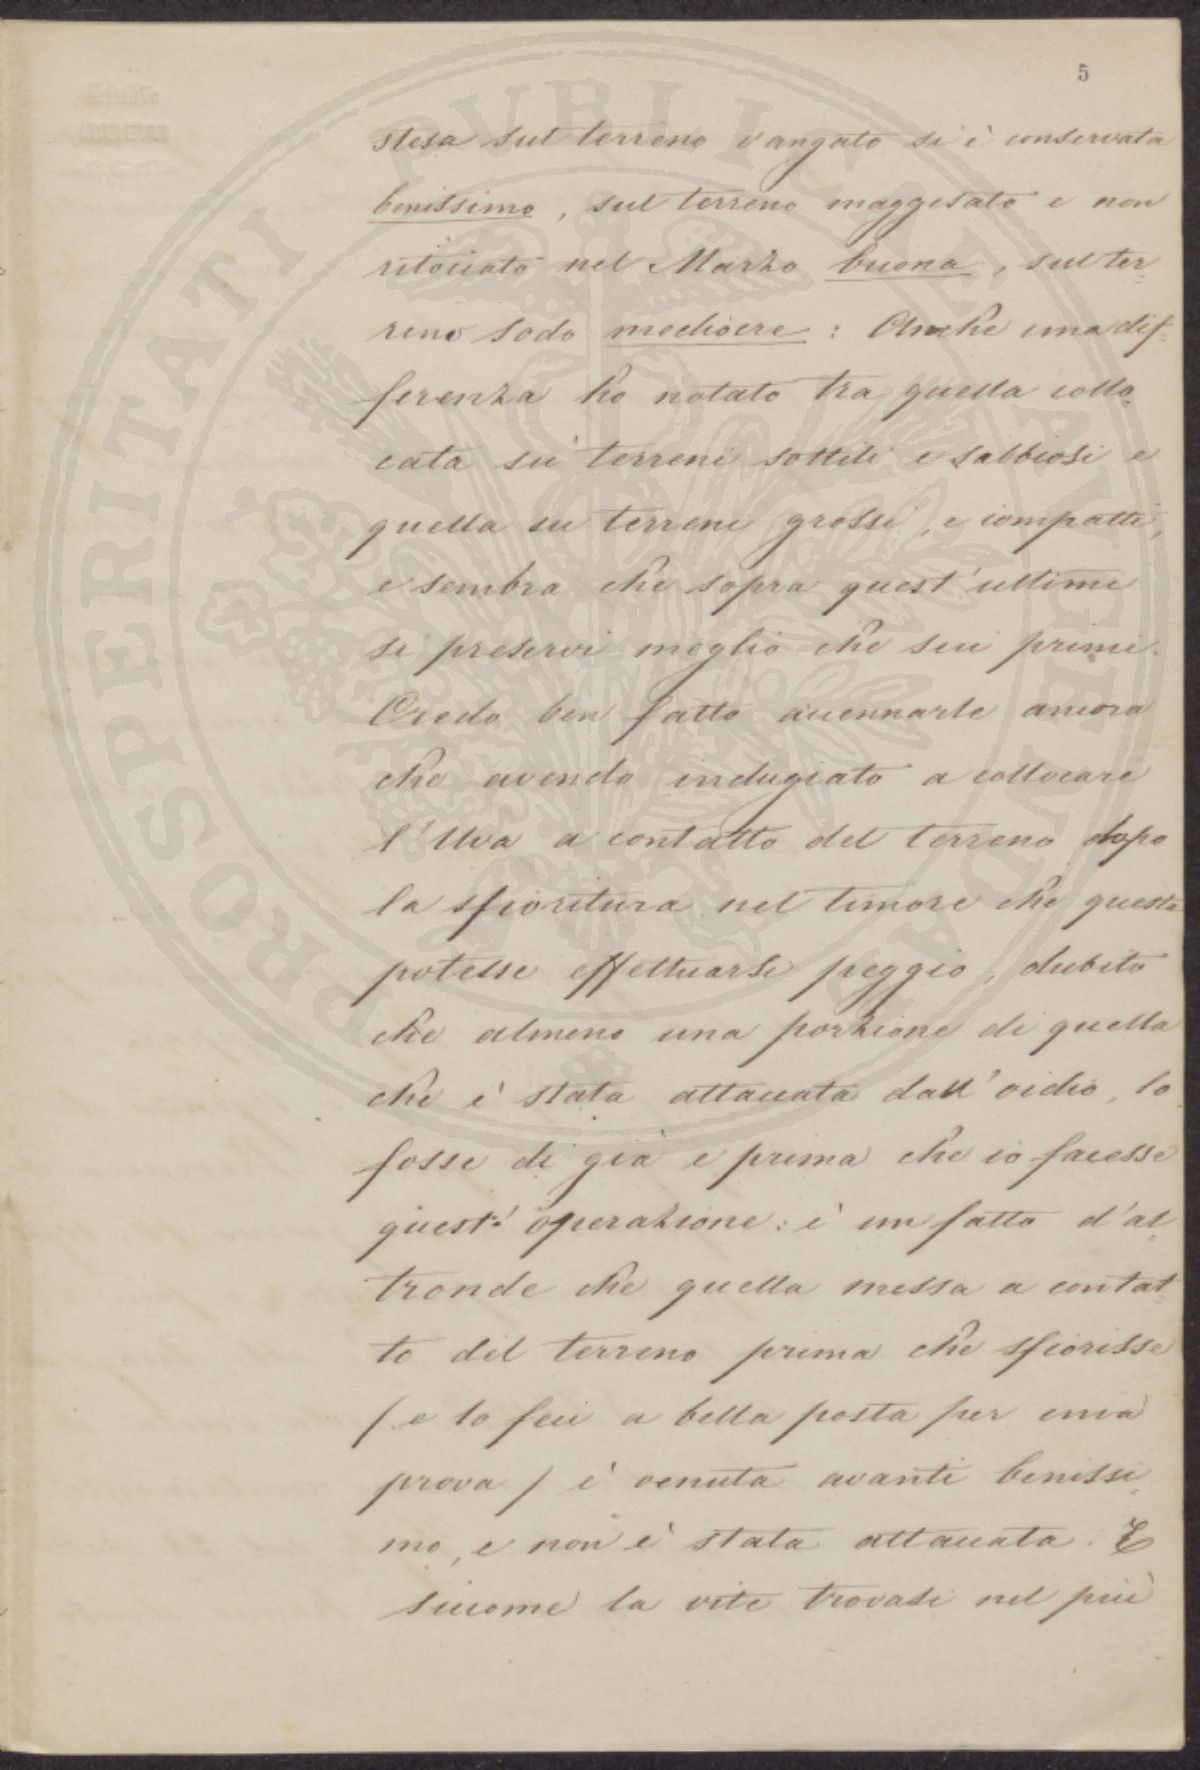 5
stesa sul terreno vangato si è conservata
benissimo, sul terreno maggesato e non
ritoccato nel Marzo buona, sul ter=
reno sodo mediocre: Anche una dif=
ferenza ho notato tra quella collo=
cata su' terreni sottili e sabbiosi e
quella su terreni grossi, e compatti,
e sembra che sopra quest'ultimi
si preservi meglio che sui primi.
Credo ben fatto accennarle ancora
che avendo indugiato a collocare
l'Uva a contatto del terreno dopo
la sfioritura nel timore che questa
potesse effettuarsi peggio, dubito
che almeno una porzione di quella
che è stata attaccata dall'oidio, lo
fosse di già e prima che io facesse
quest'operazione: è un fatto d'al=
tronde che quella messa a contat=
to del terreno prima che sfiorisse
/ e lo feci a bella posta per una
prova / è venuta avanti benissi=
mo, e non è stata attaccata. E
siccome la vite trovasi nel più
PROSPERITATI PUBLICAE AUGENDAE